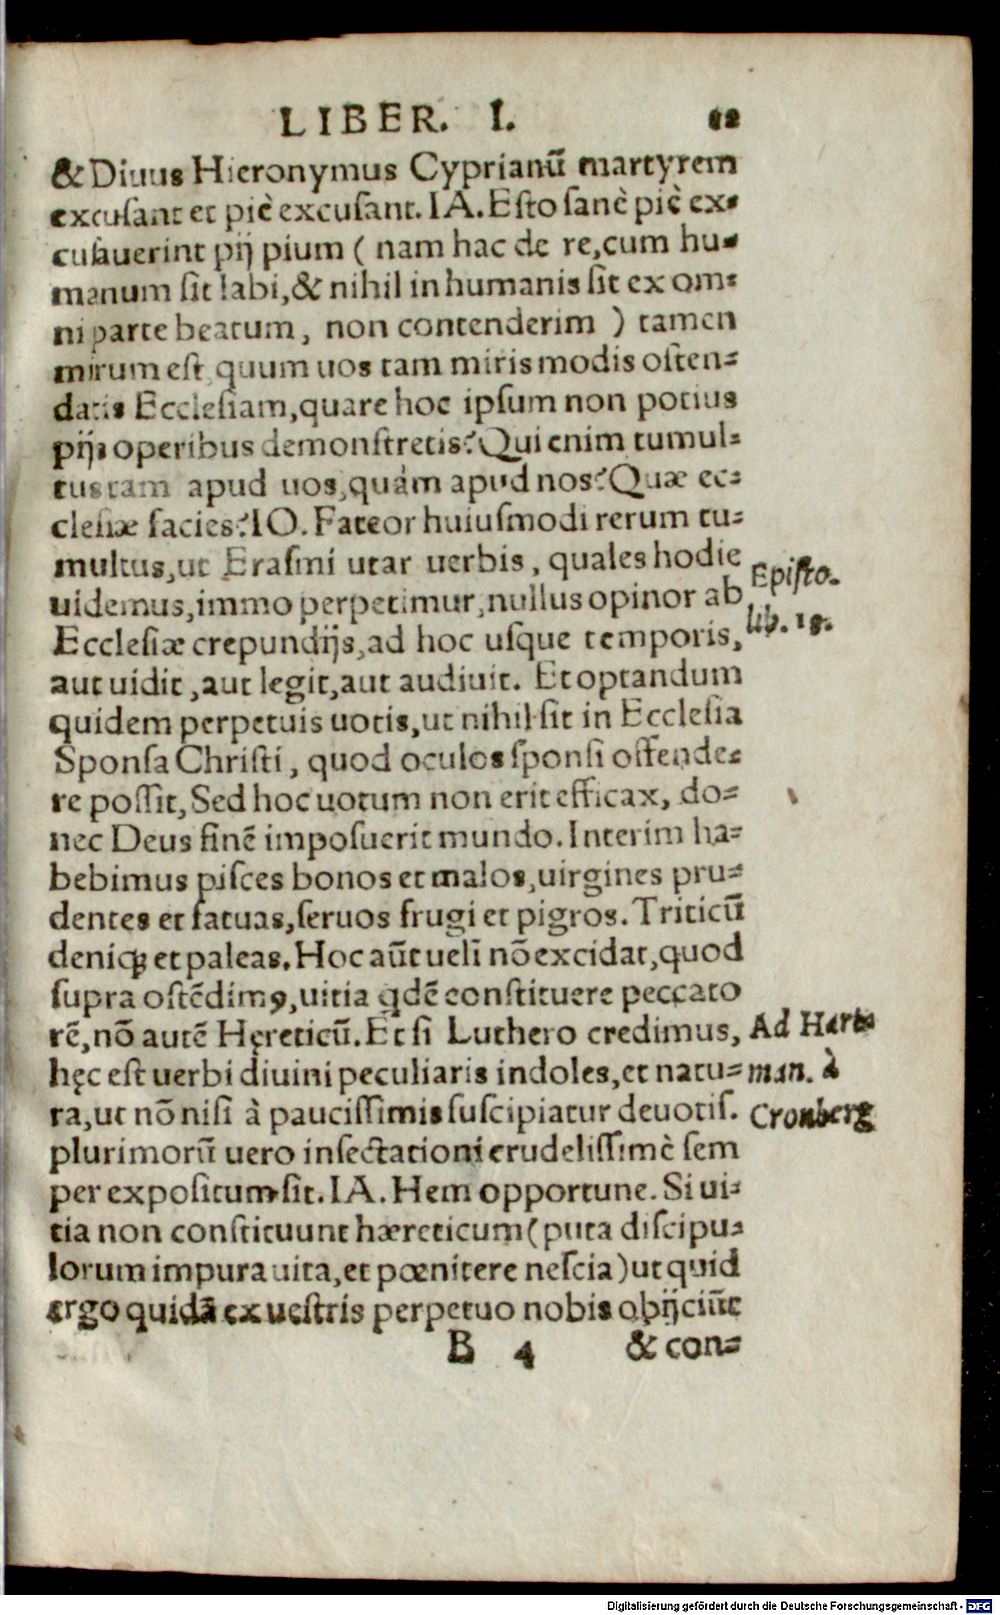 LIBER. I. 12
& Diuus Hieronymus Cyprianū martyrem
excusant et piè excusant. IA. Esto sanè piè ex-
cusauerint pij pium ( nam hac de re, cum hu-
manum sit labi, & nihil in humanis sit ex om-
ni parte beatum, non contenderim ) tamen
mirum est quum uos tam miris modis osten-
datis Ecclesiam, quare hoc ipsum non potius
pijs operibus demonstretis? Qui enim tumul-
tus tam apud uos, quàm apud nos? Quæ ec-
clesiæ facies? IO. Fateor huiusmodi rerum tu-
multus, ut Erasmi utar uerbis, quales hodie
Episto.
uidemus, immo perpetimur, nullus opinor ab
lib. 18.
Ecclesiæ crepundijs, ad hoc usque temporis,
aut uidit, aut legit, aut audiuit. Et optandum
quidem perpetuis uotis, ut nihil sit in Ecclesia
Sponsa Christi, quod oculos sponsi offende-
re possit, Sed hoc uotum non erit efficax, do-
nec Deus finē imposuerit mundo. Interim ha-
bebimus pisces bonos et malos, uirgines pru-
dentes et fatuas, seruos frugi et pigros. Triticū
deniqꝫ et paleas. Hoc aūt uelī nō excidat, quod
supra ostēdimꝰ, uitia qdē constituere peccato
rē, nō autē Hęreticū. Et si Luthero credimus,
Ad Hart-
hęc est uerbi diuini peculiaris indoles, et natu-
man. à
ra, ut nō nisi à paucissimis suscipiatur deuotis.
Cronberg
plurimorū uero insectationi crudelissimè sem
per expositum sit. IA. Hem opportune. Si ui-
tia non constituunt hæreticum (puta discipu-
lorum impura uita, et pœnitere nescia) ut quid
ergo quidā ex uestris perpetuo nobis obijciūt
B 4 & con-
Digitalisierung gefördert durch die Deutsche Forschungsgemeinschaft - DFG